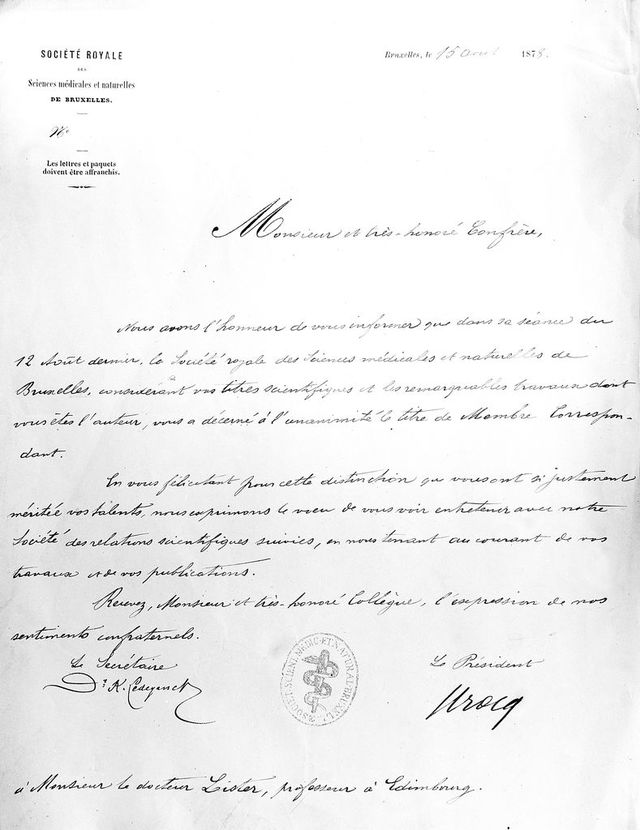 SOCIÉTÉ ROYALE
DES
Sciences médicales et naturelles
DE BRUXELLES.
Nº
Les lettres et paquets
doivent être affranchis.
Bruxelles, le 15 Août 1878.
Monsieur et très-honoré Confrère,
Nous avons l'honneur de vous informer que dans sa séance du
12 Août dernier, la Société royale des Sciences médicales et naturelles de
Bruxelles, considérant vos titres scientifiques et les remarquables travaux dont
vous êtes l'auteur, vous a décerné à l'unanimité le titre de Membre Correspon-
dant.
En vous félicitant pour cette distinction que vous ont si justement
méritée vos talents, nous exprimons le voeu de vous voir entretenir avec notre
Société des relations scientifiques suivies, en nous tenant au courant de vos
travaux et de vos publications.
Recevez, Monsieur et très-honoré Collègue, l'expression de nos
sentiments confraternels.
Le Secrétaire
Dr K.
Le Président
Crocq
à Monsieur le docteur Lister, professeur à Edimbourg.